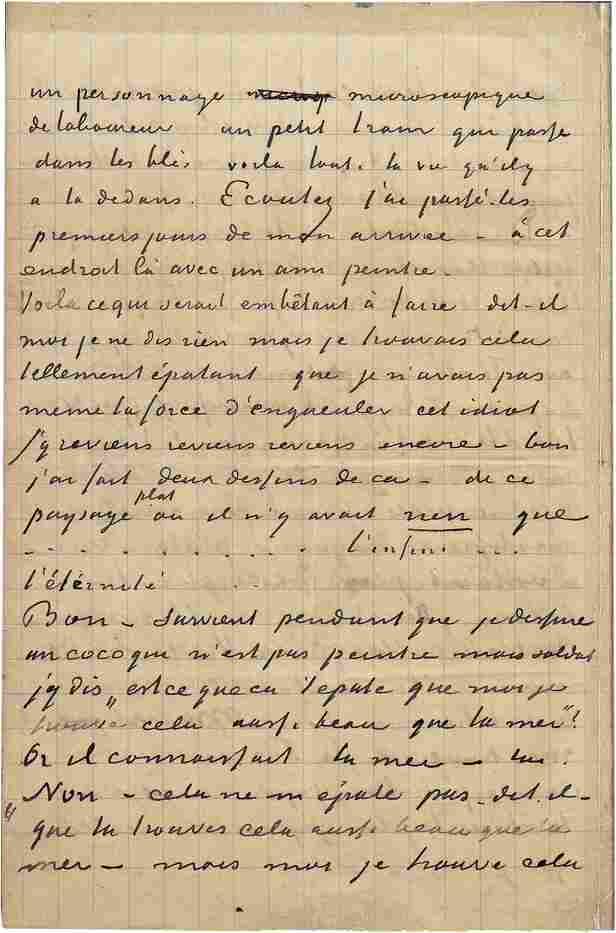 un personnage microscopique
de laboureur un petit train qui passe
dans les blés voila toute la vie qu'il y
a la dedans. Ecoutez j'ai passé – les
premiers jours de mon arrivee – à cet
endroit là avec un ami peintre –
Voila ce qui serait embêtant à faire dit-il
moi je ne dis rien mais je trouvais cela
tellement épatant que je n'avais pas
meme la force d'engueuler cet idiot
j'y reviens reviens reviens encore – bon
j'ai fait deux dessins de ca – de ce
paysage plat où il n'y avait rien que
. . . . . . . . . . l'infini . . .
l'éternité . .
Bon – survient pendant que je dessine
un coco qui n'est pas peintre mais soldat
j'y dis „ est ce que ca t'epate que moi je
trouve cela aussi beau que la mer"?
Or il connaissait la mer – lui.
„Non – cela ne m'épate pas – dit-il –
que tu trouves cela aussi beau que la
mer – mais moi je trouve cela